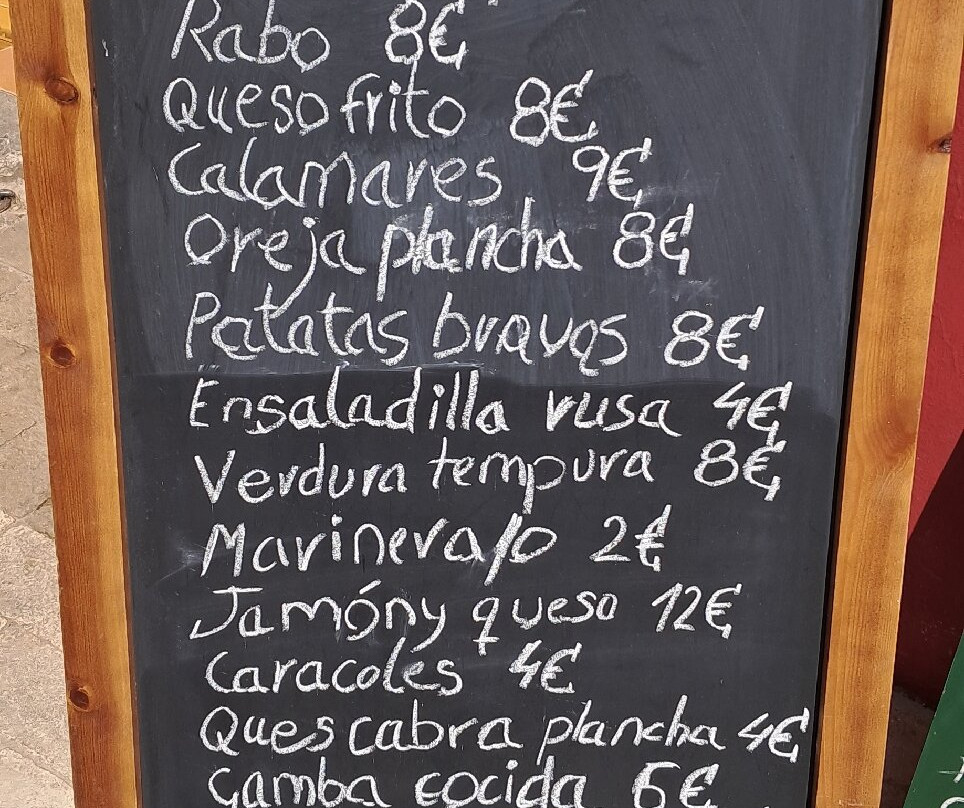 Rabo 8€
Queso frito 8€
Calamares 9€
Oreja plancha 8€
Patatas bravas 8€
Ensaladilla rusa 4€
Verdura tempura 8€
Marinera/o 2€
Jamón y queso 12€
Caracoles 4€
Ques cabra plancha 4€
Gamba cocida 6€